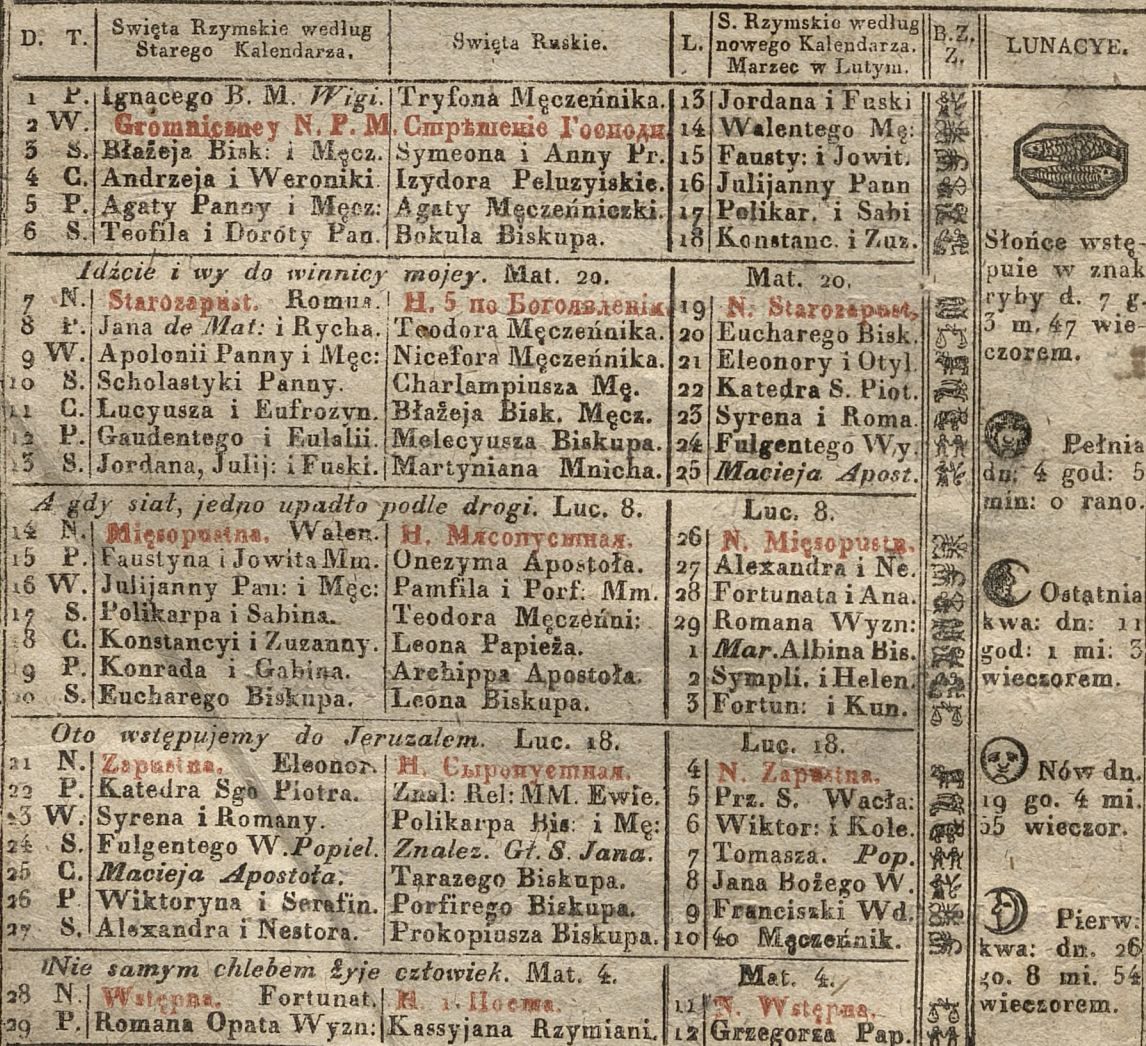 D. T. Swięta Rzymskie według Starego Kalendarza. Swięta Ruskie. L. S. Rzymskie według nowego Kalendarza. Marzec w Lutym. B.Z.Z. LUNACYE.
1 P. Ignacego B. M. Wigi. Tryfona Męczeńnika. 13 Jordana i Fuski
2 W. Gromniczney N. P. M. Стрѣтенїе Господн 14 Walentego Mę:
3 S. Błażeja Bisk: i Męcz. Symeona i Anny Pr. 15 Fausty: i Jowit.
4 C. Andrzeja i Weroniki. Izydora Peluzyiskie. 16 Julijanny Pann
5 P. Agaty Panny i Męcz: Agaty Męczeńniczki. 17 Polikar. i Sabi
6 S. Teofila i Doróty Pan. Bokula Biskupa. 18 Konstanc. i Zuz.
Słońce wstę
puie w znak
ryby d. 7 g.
3 m. 47 wie
czorem.
Idźcie i wy do winnicy mojey. Mat. 20. Mat. 20.
7 N. Starozapust. Romua. Н. 5 по Богоявленїи 19 N. Starozapust,
8 P. Jana de Mat: i Rycha. Teodora Męczeńnika. 20 Eucharego Bisk.
9 W. Apolonii Panny i Męc: Nicefora Męczeńnika. 21 Eleonory i Otyl.
10 S. Scholastyki Panny. Charlampiusza Mę. 22 Katedra S. Piot.
11 C. Lucyusza i Eufrozyn. Błażeja Bisk. Męcz. 23 Syrena i Roma.
12 P. Gaudentego i Eulalii. Melecyusza Biskupa. 24 Fulgentego Wy.
13 S. Jordana, Julij: i Fuski. Martyniana Mnicha. 25 Macieja Apost.
Pełnia
dn: 4 god: 5
min: 0 rano.
A gdy siał, jedno upadło podle drogi. Luc. 8. Luc. 8.
14 N. Mięsopustna. Walen. Н. Мясопустная. 26 N. Mięsopustn.
15 P. Faustyna i Jowita Mm. Onezyma Apostoła. 27 Alexandra i Ne.
16 W. Julijanny Pan: i Męc: Pamfila i Porf: Mm. 28 Fortunata i Ana.
17 S. Polikarpa i Sabina. Teodora Męczeńni: 29 Romana Wyzn:
18 C. Konstancyi i Zuzanny. Leona Papieża. 1 Mar. Albina Bis.
19 P. Konrada i Gabina. Archippa Apostoła. 2 Sympli. i Helen.
20 S. Eucharego Biskupa. Leona Biskupa. 3 Fortun: i Kun.
Ostątnia
kwa: dn: 11
god: 1 mi: 3
wieczorem.
Oto wstępujemy do Jeruzalem. Luc. 18. Luc. 18.
21 N. Zapustna. Eleonor. Н. Сыропустная. 4 N. Zapustna.
22 P. Katedra Sgo Piotra. Znal: Rel: MM. Ewie. 5 Prz. S. Wacła:
23 W. Syrena i Romany. Polikarpa Bis: i Mę: 6 Wiktor: i Kole.
24 S. Fulgentego W. Popiel. Znalez. Gł. S. Jana. 7 Tomasza. Pop.
25 C. Macieja Apostoła. Tarazego Biskupa. 8 Jana Bożego W.
26 P Wiktoryna i Serafin. Porfirego Biskupa. 9 Franciszki Wd.
27 S. Alexandra i Nestora. Prokopiusza Biskupa. 10 40 Męczeńnik.
Nów dn.
19 go. 4 mi.
55 wieczor.
Pierw.
kwa: dn. 26
go. 8 mi. 54
wieczorem.
Nie samym chlebem żyje człowiek. Mat. 4. Mat. 4.
28 N. Wstępna. Fortunat. Н. 1. Поста. 11 N. Wstępna.
29 P. Romana Opata Wyzn: Kassyjana Rzymiani. 12 Grzegorza Pap.